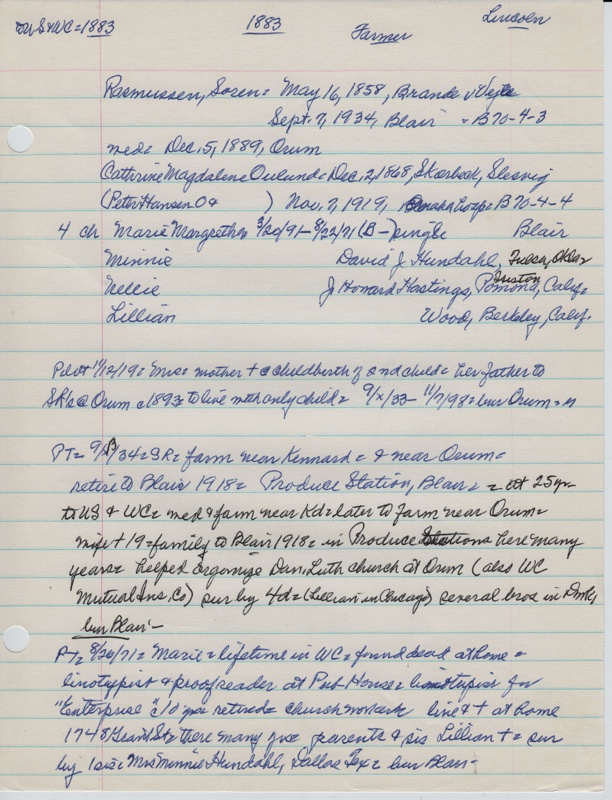 to US & WC = 1883 1883 Farmer Lincoln
Rasmussen, Soren = May 16, 1858, Brande Vejle
Sept. 7, 1934, Blair = B70-4-3
med = Dec. 5, 1889, Orum
Catherine Magdalene Oulund = Dec. 2, 1868, Skarbaek, Slesvig
(Peter Hansen O & ) Nov. 7, 1919, Omaha B70-4-4
4 ch Marie Margrethe 3/20/91 - 8/22/71 (B-) single Blair
Minnie David J. Hundahl, Tulsa, Okla
Nellie J. Howard Hastings, Pomona, Calif.
Lillian Wood, Berkeley, Calif.
Pilot 11/12/19 = Mrs = mother + @ childbirth of 2nd child = her father to
SR's @ Orum c 1893 = to live with only child = 9/ /33 - 11/7/98 = bur Orum =
PT = 9/ /34 = SR = farm near Kennard = & near Orum =
retire to Blair 1918 = Produce Station, Blair = = at 25 yr -
to US & WC = med & farm near Kd = later to farm near Orum =
wife + 19 = family to Blair 1918 = in Produce Stations here many
years = helped organize Dan. Luth church at Orum (also WC
Mutual Ins. Co) sur by 4d = (Lillian in Chicago) several bros in Dmk,
bur Blair -
PT = 8/26/71 = Marie = lifetime in WC = found dead at home =
linotypist & proofreader at Pub House = linotypist for
"Enterprise" c 10 yrs retired = church work live & + at home
1748 Grant St = there many yrs parents & sis Lillian + = sur
by 1 sis = Mrs Minnie Hundahl, Dallas Tex = bur Blair -